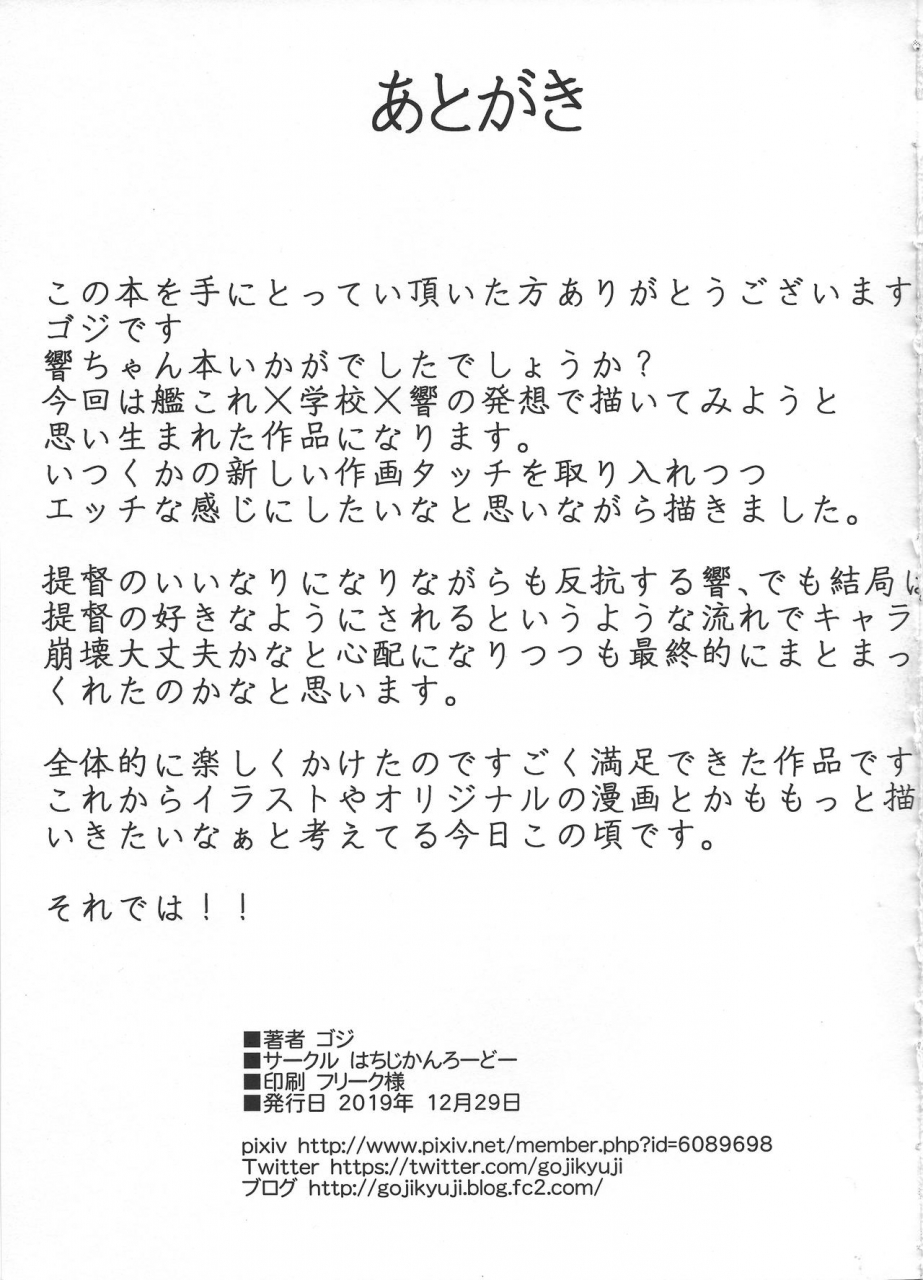 あとがき
この本を手にとってい頂いた方ありがとうございます
ゴジです
響ちゃん本いかがでしたでしょうか？
今回は艦これ×学校×響の発想で描いてみようと
思い生まれた作品になります。
いつくかの新しい作画タッチを取り入れつつ
エッチな感じにしたいなと思いながら描きました。
提督のいいなりになりながらも反抗する響、でも結局に
提督の好きなようにされるというような流れでキャラ
崩壊大丈夫かなと心配になりつつも最終的にまとまっ
くれたのかなと思います。
全体的に楽しくかけたのですごく満足できた作品です
これからイラストやオリジナルの漫画とかももっと描
いきたいなぁと考えてる今日この頃です。
それでは！！
■著者 ゴジ
■サークル はちじかんろーどー
■印刷 フリーク様
■発行日 2019年 12月29日
pixiv http://www.pixiv.net/member.php?id=6089698
Twitter https://twitter.com/gojikyuji
ブログ http://gojikyuji.blog.fc2.com/